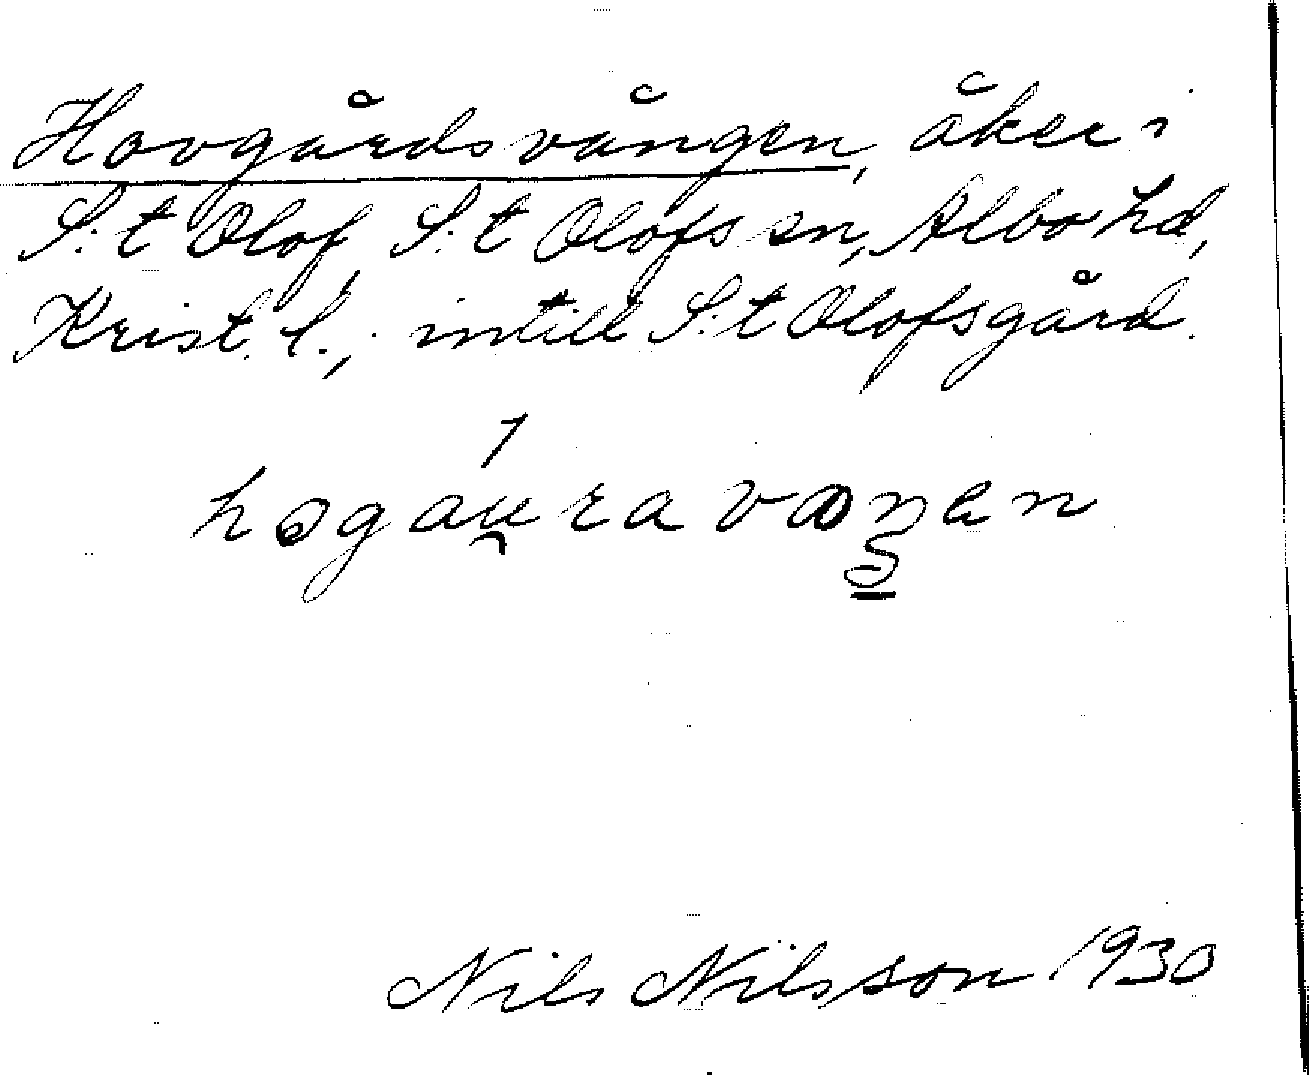 Hovgårdsvången, åker i
S:t Olof, S:t Olofs sn, Albo hd,
Krist. l.; intill S:t Olofsgård.
Nils Nilsson 1930